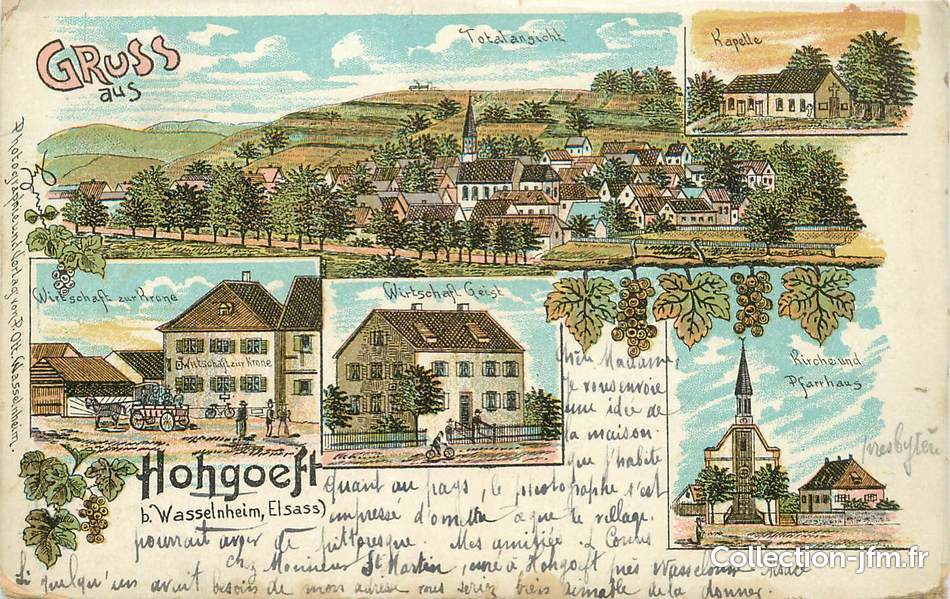 GRUSS
aus
Totalansicht
Kapelle
Wirtschaft zur Krone
Wirtschaft zur Krone
Wirtschaft Geist
Kirche und
Pfarrhaus
presbytère
Hohgoeft
b. Wasselnheim, Elsass)
Photographie und Verlag von P. Ott. Wasselnheim.
Chère Madame,
Je vous envoie
une idée de
la maison
que j'habite
Quant au pays, le photographe s'est
empressé d'omettre ce que le village
pourrait avoir de pittoresque. Mes amitiés. L
chez Monsieur St Martin, curé à Hohgoeft près Wasselonne Alsace
Si quelqu'un avait besoin de mon adresse vous seriez bien aimable de la donner.
Collection-jfm.fr